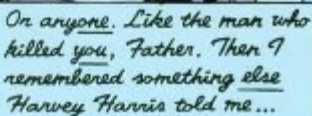 Or anyone. Like the man who
killed you, Father. Then I
remembered something else
Harvey Harris told me...